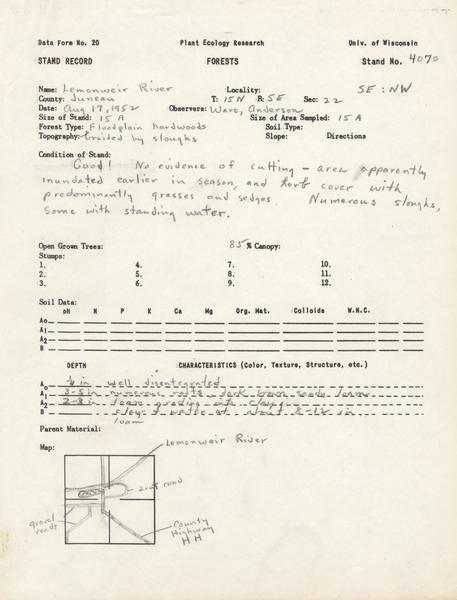 Data Form No. 20 Plant Ecology Research Univ. of Wisconsin
STAND RECORD FORESTS Stand No. 4070
Name: Lemonweir River Locality: SE : NW
County: Juneau T: 15N R: 5E Sec: 22
Date: Aug 17, 1952 Observers: Ware, Anderson
Size of Stand: 15 A Size of Area Sampled: 15 A
Forest Type: Floodplain hardwoods Soil Type:
Topography: braided by sloughs Slope: Directions
Condition of Stand:
Good! No evidence of cutting - area apparently
inundated earlier in season, and herb cover with
predominantly grasses and sedges. Numerous sloughs,
some with standing water.
Open Grown Trees: 85 % Canopy:
Stumps:
1. 4. 7. 10.
2. 5. 8. 11.
3. 6. 9. 12.
Soil Data:
pH N P K Ca Mg Org. Mat. Colloids W.H.C.
Ao
A1
A2
B
DEPTH CHARACTERISTICS (Color, Texture, Structure, etc.)
Ao in well disentegrated
A1 3-5 in numerous roots, dark brown sandy loam
A2 2-8 in loam grading into clayey
B clay - water at about 8-12 in
loam
Parent Material:
Map:
Lemonweir River
2 rut road
gravel
roads
County
Highway
HH